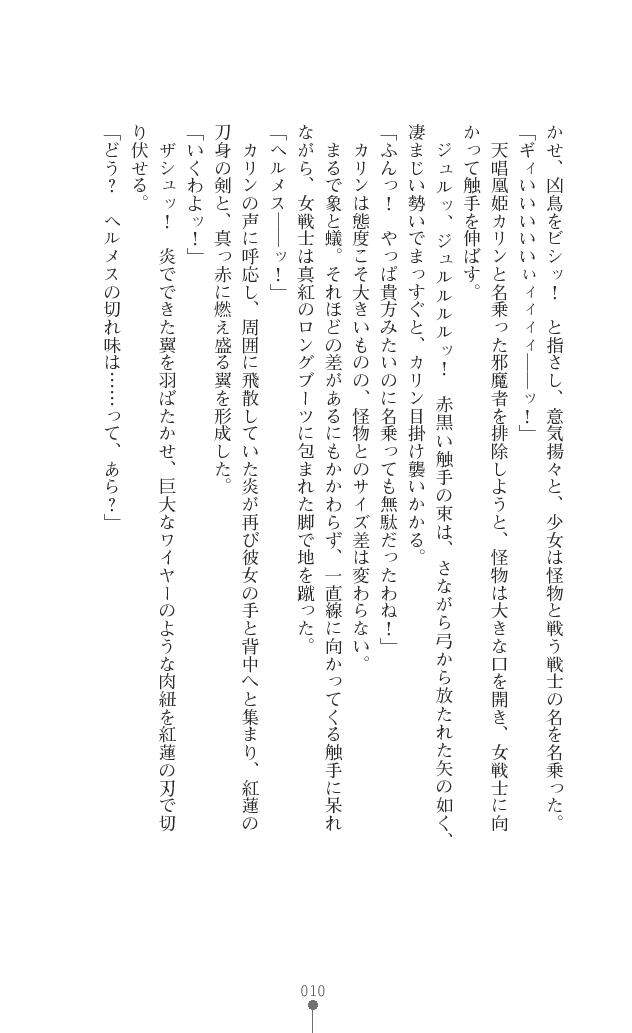 かせ、凶鳥をビシッ！　と指さし、意気揚々と、少女は怪物と戦う戦士の名を名乗った。
「ギィいいいいいぃィィィィ――ッ！」
　天唱凰姫カリンと名乗った邪魔者を排除しようと、怪物は大きな口を開き、女戦士に向
かって触手を伸ばす。
　ジュルッ、ジュルルルルッ！　赤黒い触手の束は、さながら弓から放たれた矢の如く、
凄まじい勢いでまっすぐと、カリン目掛け襲いかかる。
「ふんっ！　やっぱ貴方みたいのに名乗っても無駄だったわね！」
　カリンは態度こそ大きいものの、怪物とのサイズ差は変わらない。
　まるで象と蟻。それほどの差があるにもかかわらず、一直線に向かってくる触手に呆れ
ながら、女戦士は真紅のロングブーツに包まれた脚で地を蹴った。
「ヘルメス――ッ！」
　カリンの声に呼応し、周囲に飛散していた炎が再び彼女の手と背中へと集まり、紅蓮の
刀身の剣と、真っ赤に燃え盛る翼を形成した。
「いくわよッ！」
　ザシュッ！　炎でできた翼を羽ばたかせ、巨大なワイヤーのような肉紐を紅蓮の刃で切
り伏せる。
「どう？　ヘルメスの切れ味は……って、あら？」
010